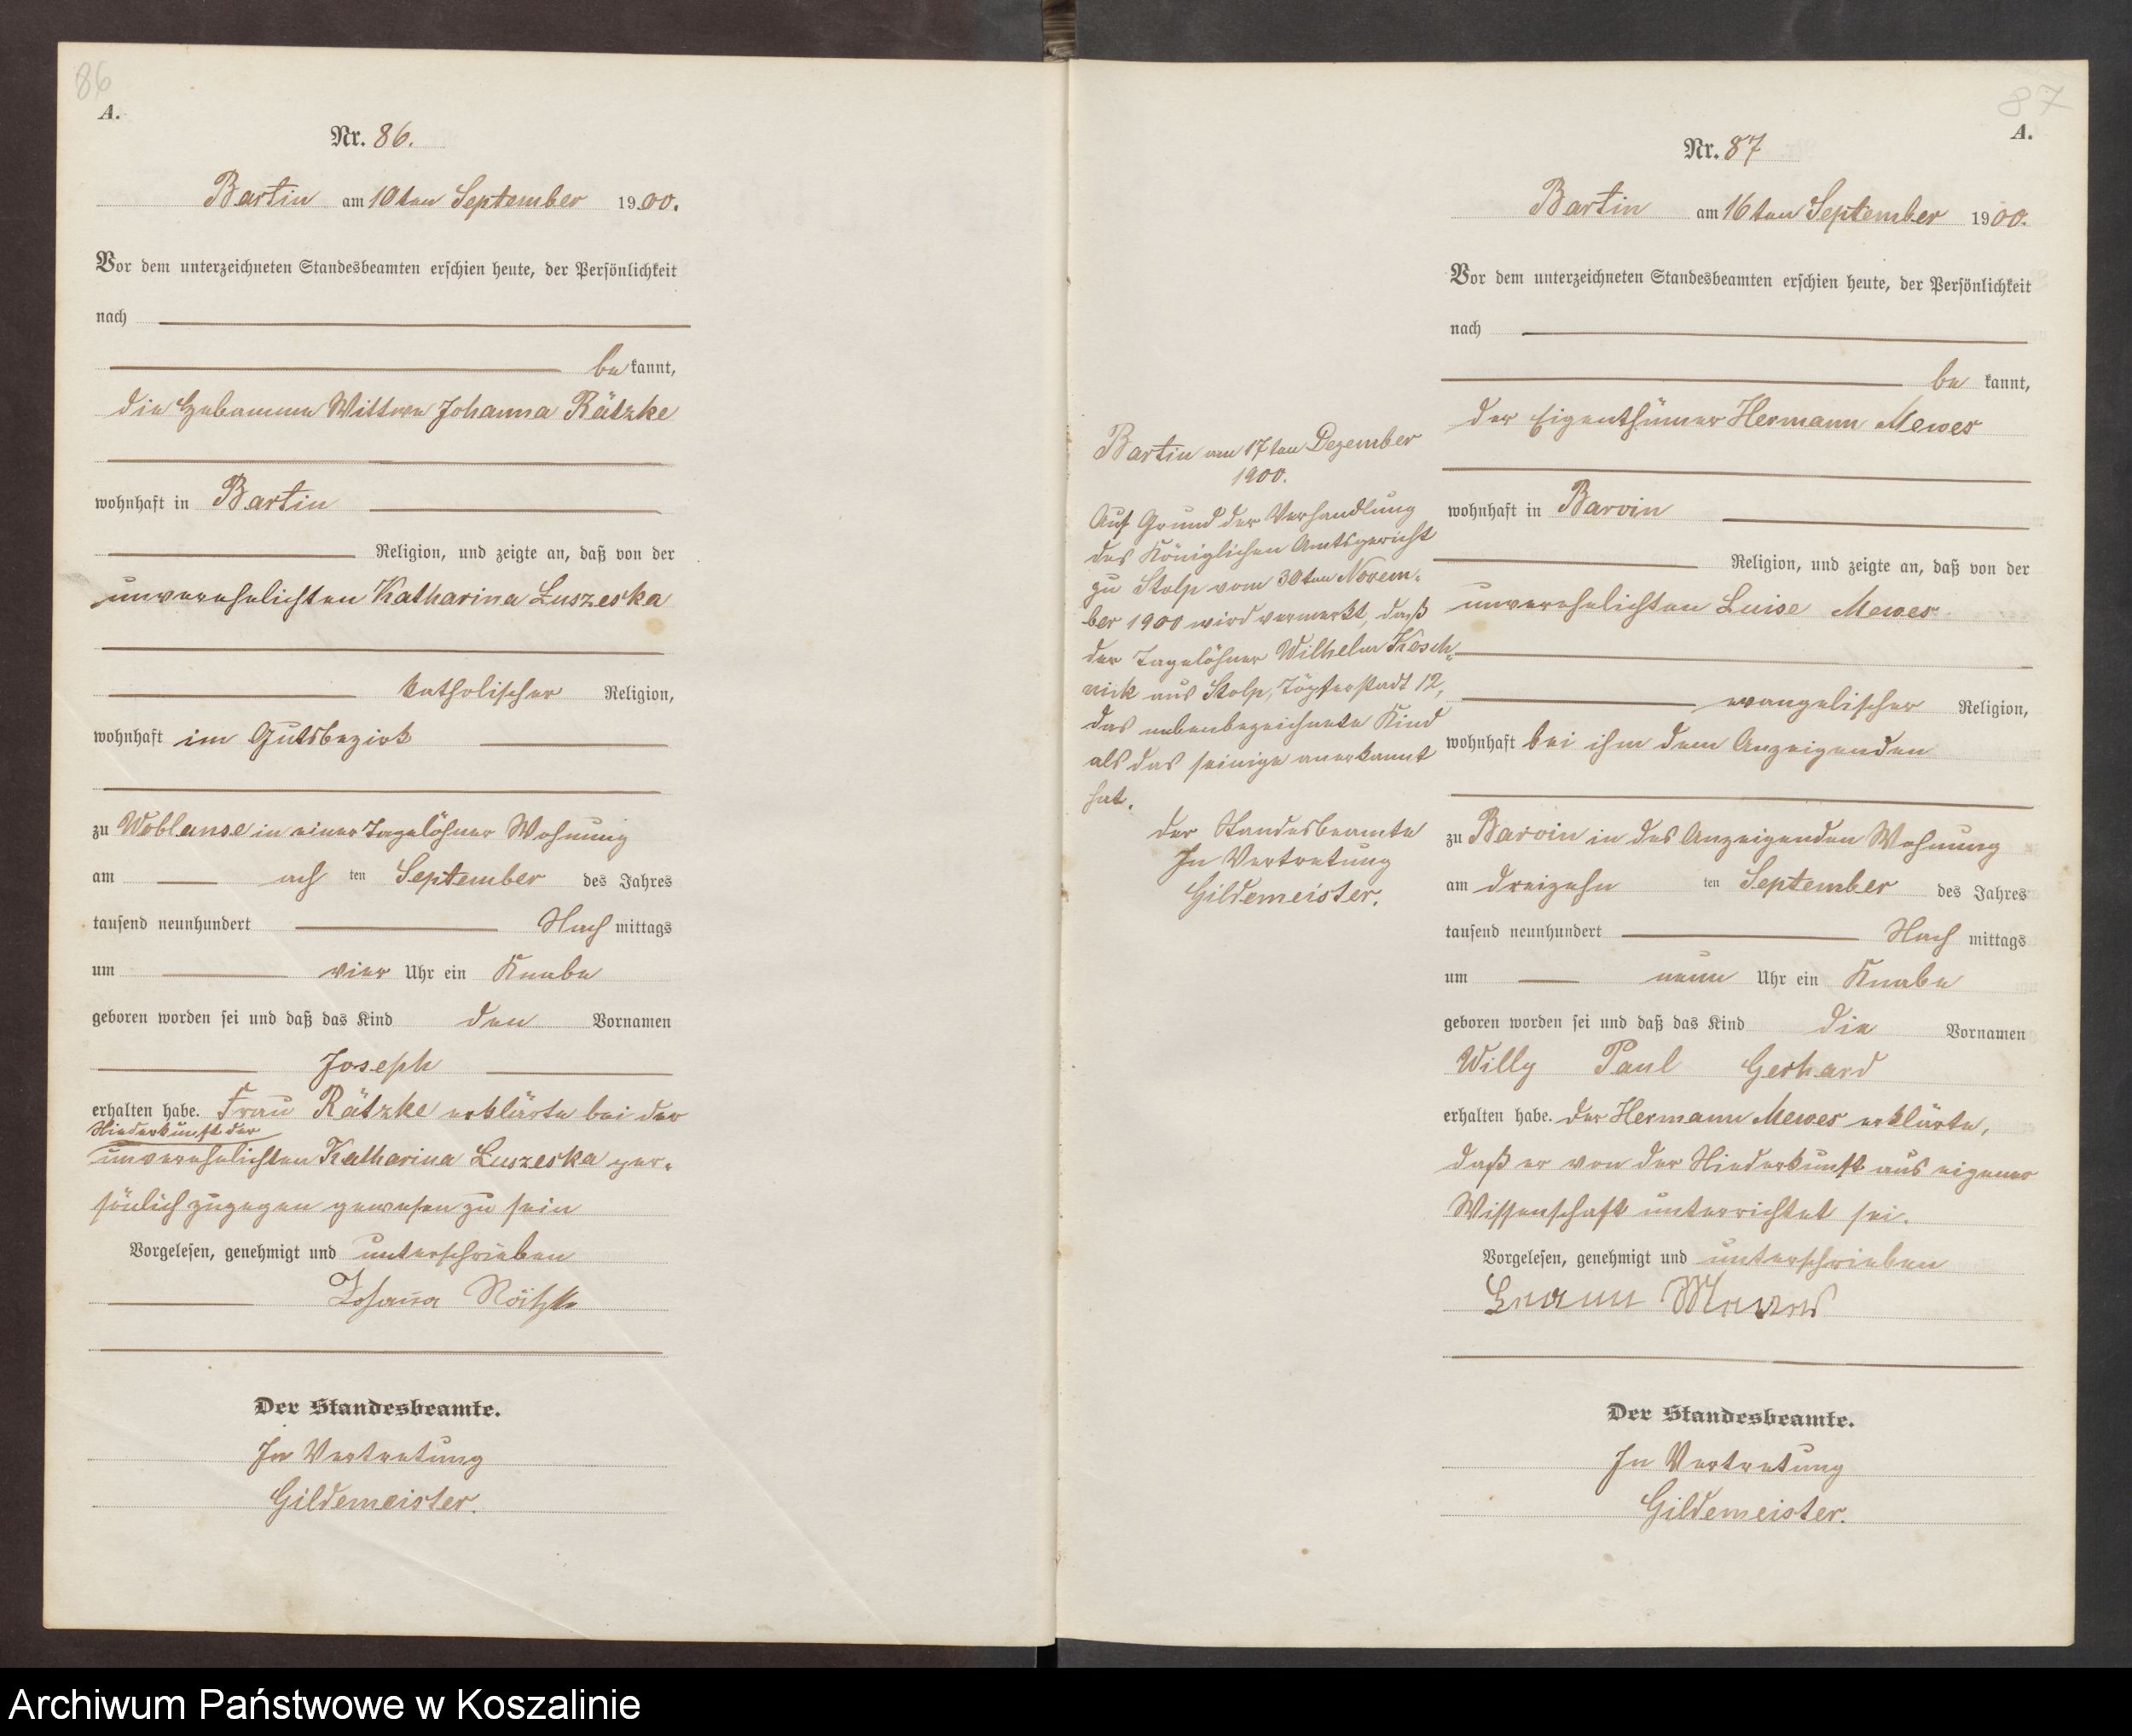 86
A.
Nr. 86.
Bartin am 10ten September 1900.
Vor dem unterzeichneten Standesbeamten erschien heute, der Persönlichkeit
nach
be kannt,
die Hebamme Wittwe Johanna Rätzke
wohnhaft in Bartin
Religion, und zeigte an, daß von der
unverehelichten Katharina Luszeska
katholischer Religion,
wohnhaft im Gutsbezirk
zu Woblanse in einer Tagelöhner Wohnung
am ach ten September des Jahres
tausend neunhundert Nach mittags
um vier Uhr ein Knabe
geboren worden sei und daß das Kind den Vornamen
Joseph
erhalten habe. Frau Rätzke erklärte bei der
Niederkunft der
unverehelichten Katharina Luszeska per-
sönlich zugegen gewesen zu sein
Vorgelesen, genehmigt und unterschrieben
Johanna Rätzke
Der Standesbeamte.
In Vertretung
Gildemeister.
87
A.
Nr. 87
Bartin am 16ten September 1900.
Vor dem unterzeichneten Standesbeamten erschien heute, der Persönlichkeit
nach
be kannt,
der Eigenthümer Hermann Mewes
wohnhaft in Barvin
Religion, und zeigte an, daß von der
unverehelichten Luise Mewes
evangelischer Religion,
wohnhaft bei ihm dem Anzeigenden
zu Barvin in des Anzeigenden Wohnung
am dreizehn ten September des Jahres
tausend neunhundert Nach mittags
um neun Uhr ein Knabe
geboren worden sei und daß das Kind die Vornamen
Willy Paul Gerhard
erhalten habe. Der Hermann Mewes erklärte,
daß er von der Niederkunft aus eigener
Wissenschaft unterrichtet sei.
Vorgelesen, genehmigt und unterschrieben
Hermann Mewes
Der Standesbeamte.
In Vertretung
Gildemeister.
Bartin am 17ten Dezember
1900.
Auf Grund der Verhandlung
des Königlichen Amtsgericht
zu Stolp vom 30ten Novem-
ber 1900 wird vermerkt, daß
der Tagelöhner Wilhelm Kosch-
nick aus Stolp, Töpferstadt 12,
das nebenbezeichnete Kind
als das seinige anerkannt
hat.
Der Standesbeamte
In Vertretung
Gildemeister.
Archiwum Państwowe w Koszalinie